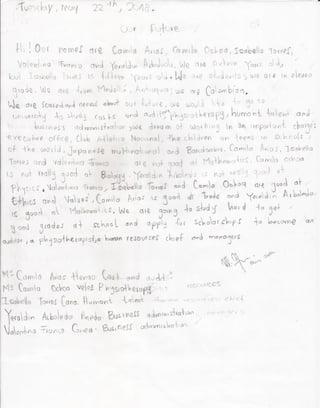 Tuesday, May 22th, 2018.
Our Future
Hi! Our names are Camila Arias, Camila Ochoa, Isabella Torres,
Valentina Franco and Yeraldin Arboleda. We are sixteen years old,
but Isabella Torres is fifteen years old. We are students, we are in eleven
grade. We are from Medellin, Antioquia; we are Colombian.
We are scared and nervous about our future, we would like to go to
university to study costs and audit, physiotherapy, humant talent and
business administration we dream of working in an important charges
executive office, Club Atletico Nacional, the children an teens in schools
of the world, Japanese multinational and Bancolombia. Camila Arias, Isabella
Torres and Valentina Franco are not good at Mathematics. Camila Ochoa
is not really good at Biology. Yeraldin Arboleda is not really good at
Physics, Valentina Franco, Isabella Torres and Camila Ochoa are good at
Ethics and Values, Camila Arias is good at Trade and Yeraldin Arboleda
is good at Mathematics. We are going to study hard to get
good grades at school and apply for scholarships to become an
auditor, a physiotherapist, a human resources chief and managers
Ma Camila Arias Henao Cost and audit
Ma Camila Ochoa Velez Physiotherapy
Isabella Torres Cano Humant talent
Yeraldin Arboleda Business administration
Valentina Franco Business administration